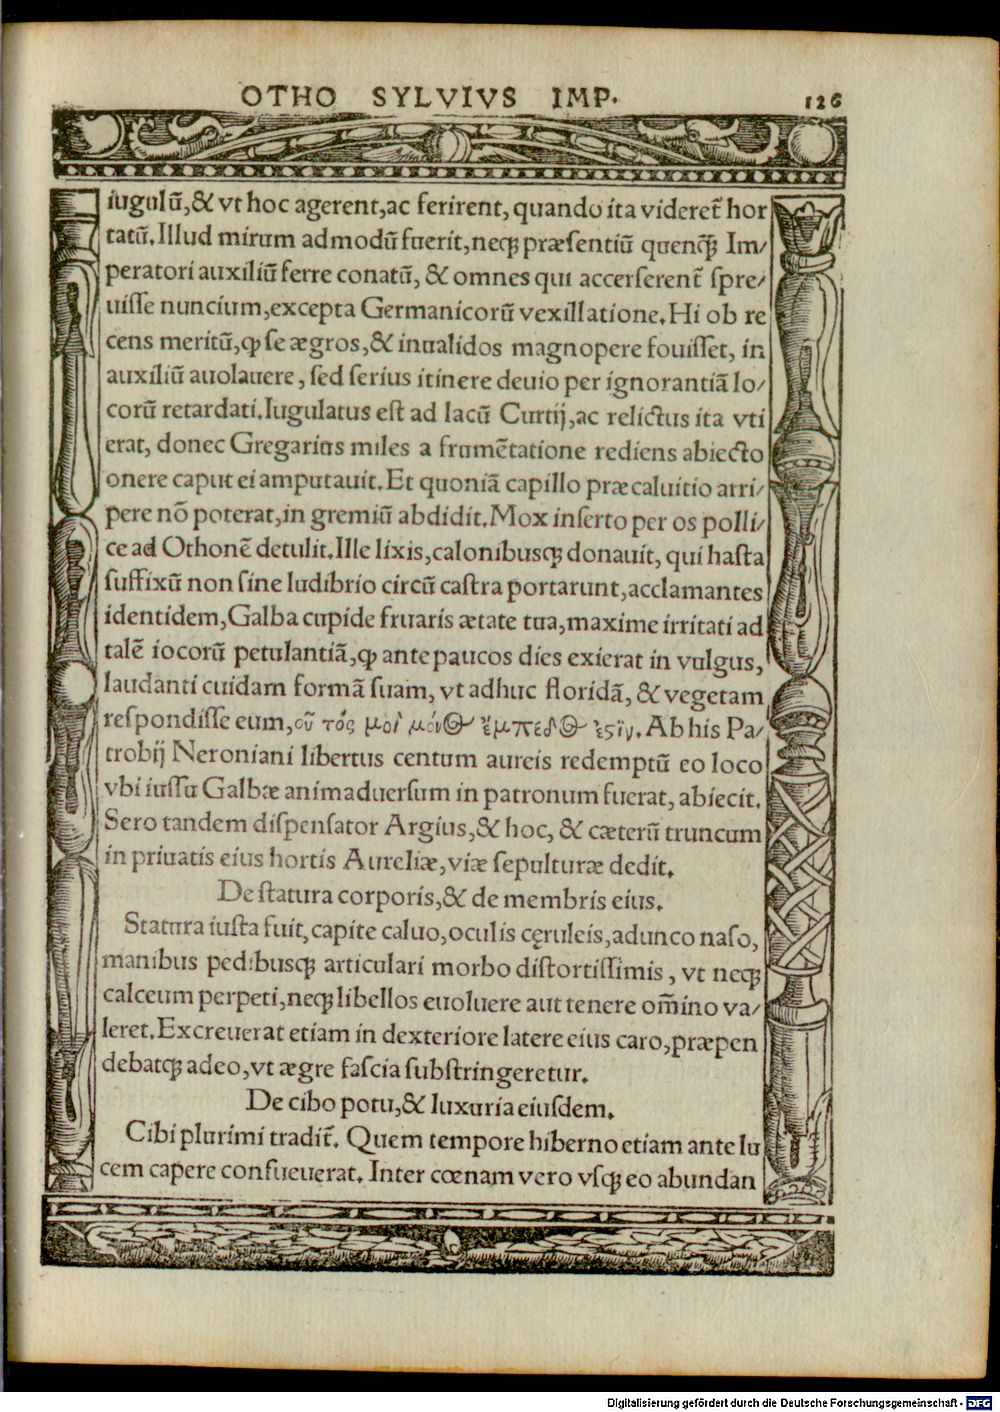 OTHO SYLVIVS IMP. 126
iugulū,& vt hoc agerent,ac ferirent, quando ita videret̄ hor
tatū.Illud mirum admodū fuerit,neqꝫ præsentiū quenqꝫ Im/
peratori auxiliū ferre conatū, & omnes qui accerserent̄ spre/
uisse nuncium,excepta Germanicorū vexillatione.Hi ob re
cens meritū,ꝙ se ægros,& inualidos magnopere fouisset, in
auxiliū auolauere, sed serius itinere deuio per ignorantiā lo/
corū retardati.Iugulatus est ad lacū Curtij,ac relictus ita vti
erat, donec Gregarius miles a frumētatione rediens abiecto
onere caput ei amputauit.Et quoniā capillo præcaluitio arri/
pere nō poterat,in gremiū abdidit.Mox inserto per os polli/
ce ad Othonē detulit.Ille lixis,calonibusqꝫ donauit, qui hasta
suffixū non sine ludibrio circū castra portarunt,acclamantes
identidem,Galba cupide fruaris ætate tua,maxime irritati ad
talē iocorū petulantiā,ꝙ ante paucos dies exierat in vulgus,
laudanti cuidam formā suam, vt adhuc floridā, & vegetam
respondisse eum,οὔ τός μοὶ μένΘ ἔμπεδΘ ἐςῒν. Ab his Pa/
trobij Neroniani libertus centum aureis redemptū eo loco
vbi iussu Galbæ animaduersum in patronum fuerat, abiecit.
Sero tandem dispensator Argius,& hoc, & cæterū truncum
in priuatis eius hortis Aureliæ,viæ sepulturæ dedit.
De statura corporis,& de membris eius.
Statura iusta fuit, capite caluo,oculis cęruleis,adunco naso,
manibus pedibusqꝫ articulari morbo distortissimis, vt neqꝫ
calceum perpeti,neqꝫ libellos euoluere aut tenere om̄ino va/
leret.Excreuerat etiam in dexteriore latere eius caro,præpen
debatqꝫ adeo,vt ægre fascia substringeretur.
De cibo potu,& luxuria eiusdem.
Cibi plurimi tradit̄. Quem tempore hiberno etiam ante lu
cem capere consueuerat. Inter cœnam vero vsqꝫ eo abundan
Digitalisierung gefördert durch die Deutsche Forschungsgemeinschaft - DFG